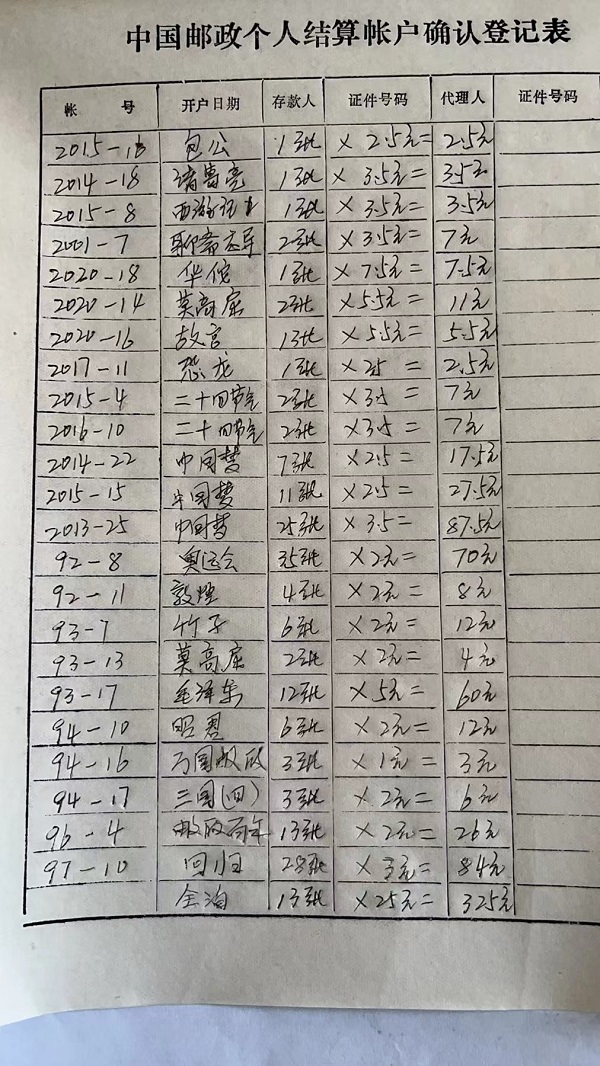 中国邮政个人结算帐户确认登记表
帐 号 开户日期 存款人 证件号码 代理人 证件号码
2015-16 包公 1张 × 2.5元= 2.5元
2014-18 诸葛亮 1张 × 3.5元= 3.5元
2015-8 西游记 1张 × 3.5元= 3.5元
2001-7 聊斋志异 2张 ×3.5元= 7元
2020-18 华佗 1张 ×7.5元= 7.5元
2020-14 莫高窟 2张 ×5.5元= 11元
2020-16 故宫 1张 ×5.5元= 5.5元
2017-11 恐龙 1张 ×25 = 2.5元
2015-4 二十四节气 2张 ×3.5 = 7元
2016-10 二十四节气 2张 ×3.5 = 7元
2014-22 中国梦 7张 ×2.5= 17.5元
2015-15 中国梦 11张 ×2.5= 27.5元
2013-25 中国梦 25张 ×3.5= 87.5元
92-8 奥运会 35张 ×2元= 70元
92-11 敦煌 4张 ×2元= 8元
93-7 竹子 6张 ×2元= 12元
93-13 莫高窟 2张 ×2元= 4元
93-17 毛泽东 12张 ×5元= 60元
94-10 昭君 6张 ×2元= 12元
94-16 万国邮政 3张 ×1元= 3元
94-17 三国(四) 3张 ×2元= 6元
96-4 邮政百年 13张 ×2元= 26元
97-10 回归 28张 ×3元= 84元
13张 ×25元= 325元